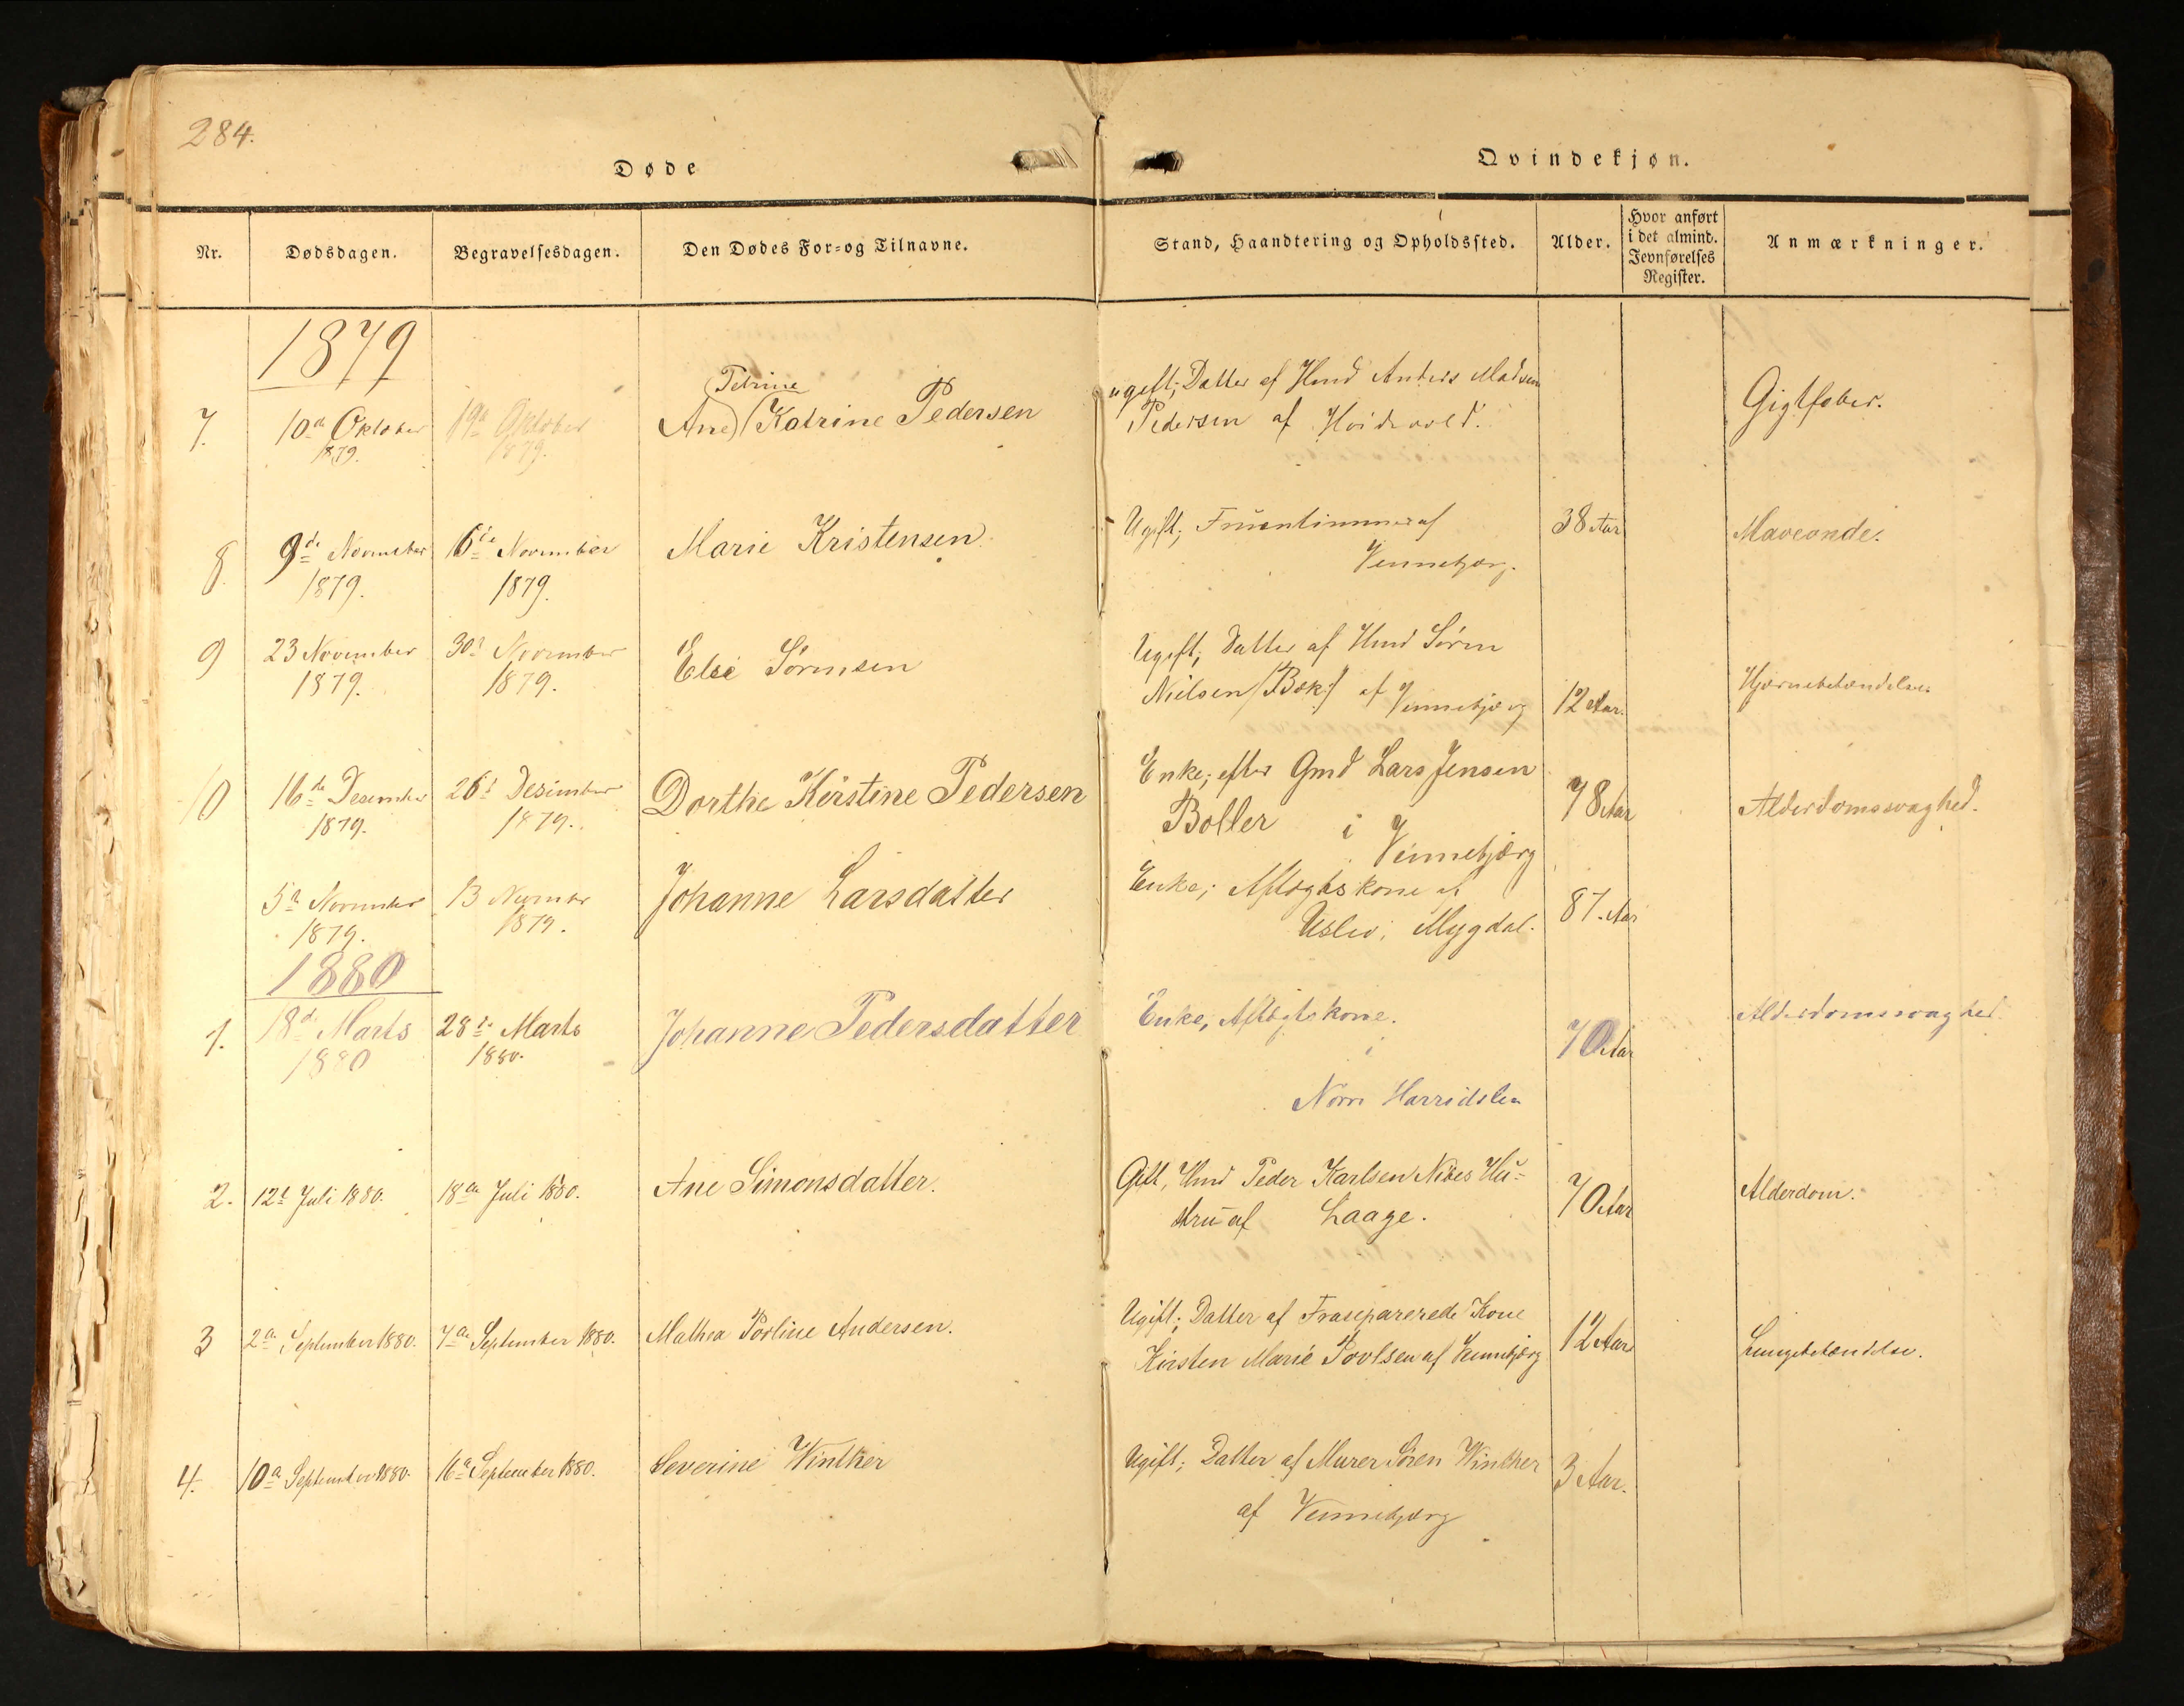 284.
Døde
Qvindekjøn.
Nr.
Dødsdagen.
Begravelsesdagen.
Den Dødes For- og Tilnavne.
Stand, Haandtering og Opholdssted.
Alder.
Hvor anført
i det almind.
Jevnførelses
Register.
Anmærkninger.
1879
7.
10de Oktober
1879.
19de Oktober
1879.
Petrine
Ane (Katrine Pedersen
ugift; Datter af Hmd Anders Madsen
Pedersen af
Gigtfeber.
8.
9de November
1879.
16de November
1879.
Marie Kristensen
Ugift; Fruentimmer af
Vennebjerg.
38 Aar
Maveonde.
9
23 November
1879.
30te November
1879.
Else Sørensen
Ugift; Datter af Hmd Søren
Nielsen (Bæk) af Vennebjerg
12 Aar.
Hjærnebetændelse.
10
16de Desember
1879.
26de Desember
1879.
Dorthe Kirstine Pedersen
Enke; efter Gmd Lars Jensen
Boller i
Vennebjærg
78 Aar
Alderdomssvaghed.
5te November
1879.
13
1879.
Johanne Larsdatter
Enke; Aftægtskone af
Uslev; Mygdal.
87 Aar
1880
1.
18de Marts
1880
28de Marts
1880.
Johanne Pedersdatter
Enke; Aftægtskone.
i
Nørre Harridslev
70 Aar
Alderdomssvaghed.
2.
12te Juli 1880.
18de Juli 1880.
Ane Simonsdatter.
Gift, Hmd Peder Karlsen Hu-
stru af Laage.
70 Aar
Alderdom.
3
2de September 1880.
7de September 1880.
Mathea Povline Andersen.
Ugift; Datter af Fraseparerede Kone
Kirsten Marie Povlsen af Vennebjerg
12 Aar
Lungebetændelse.
4.
10de September 1880.
16de September 1880.
Severine Winther
Ugift; Datter af Murer Søren Winther
af Vennebjerg
3 Aar.